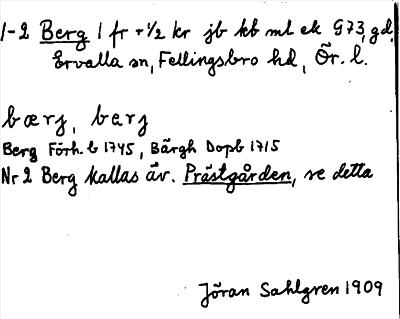 1-2 Berg 1 fr + 1/2 kr jb kb ml ek G73, gd.
Ervalla sn, Fellingsbro hd, Ör. l.
bærj, barj
Berg Förh. b 1745, Bärgh Dopb 1715
Nr 2 Berg kallas äv. Prästgården, se detta
Jöran Sahlgren 1909